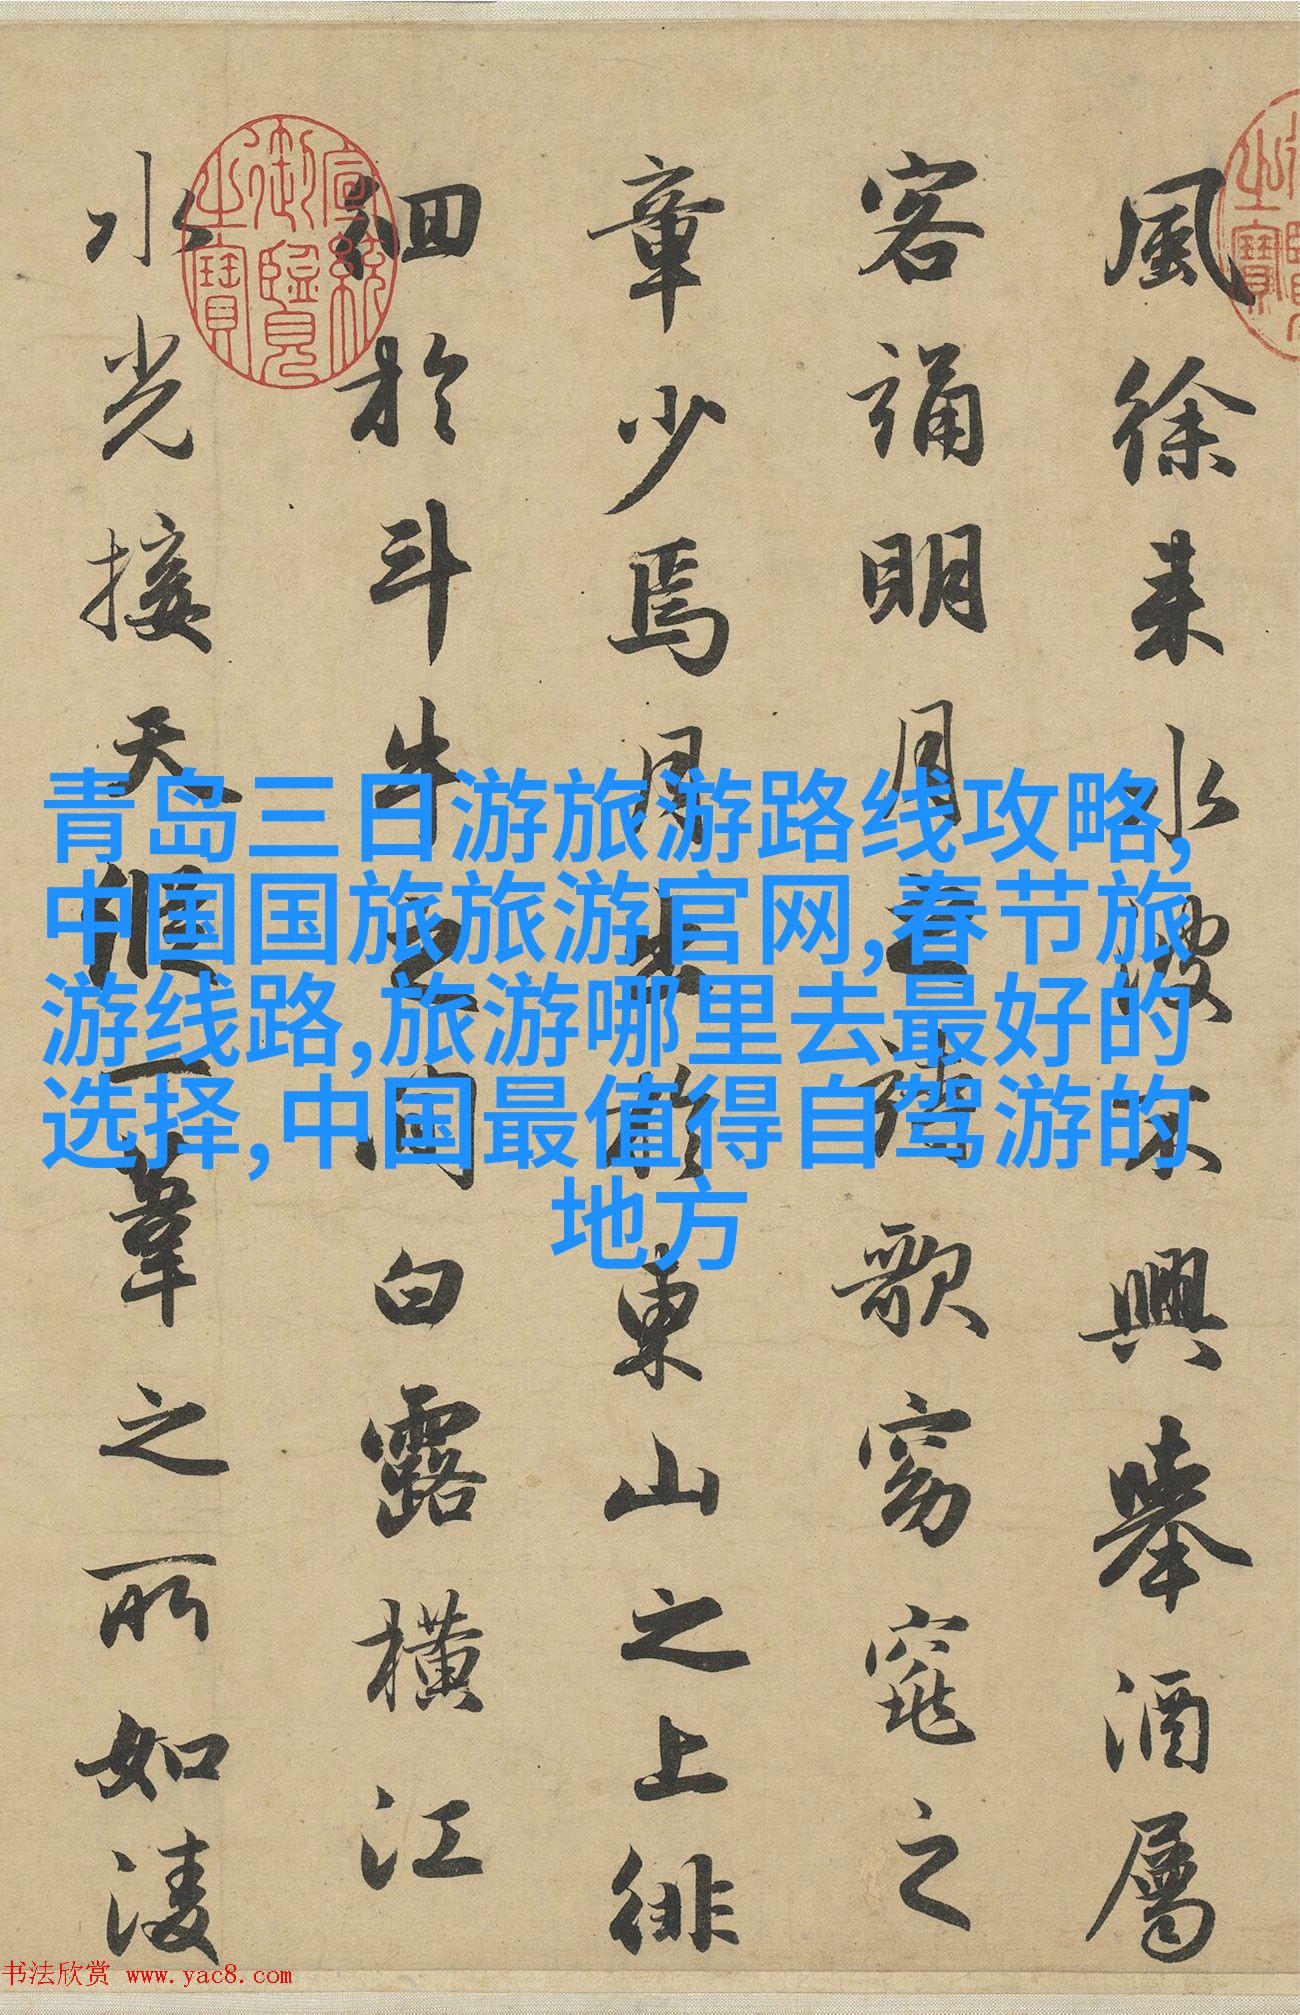 風徐来水波不興舉酒屬
客誦明月之詩歌窈窕之
章少焉月出於東山之上徘
徊於斗牛之間白露橫江
水光接天縱一葦之所如淩
宣統御覽之寶
青岛三日游旅游路线攻略,
中国国旅旅游官网,春节旅
游线路,旅游哪里去最好的
选择,中国最值得自驾游的
地方
书法欣赏 www.yac8.com